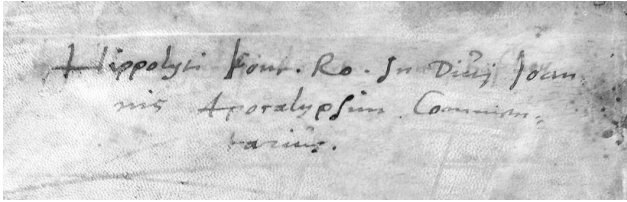 Hippolyti Pont. Ro. In Diuj Joan
nis Apocalypsim Commen-
tarius.